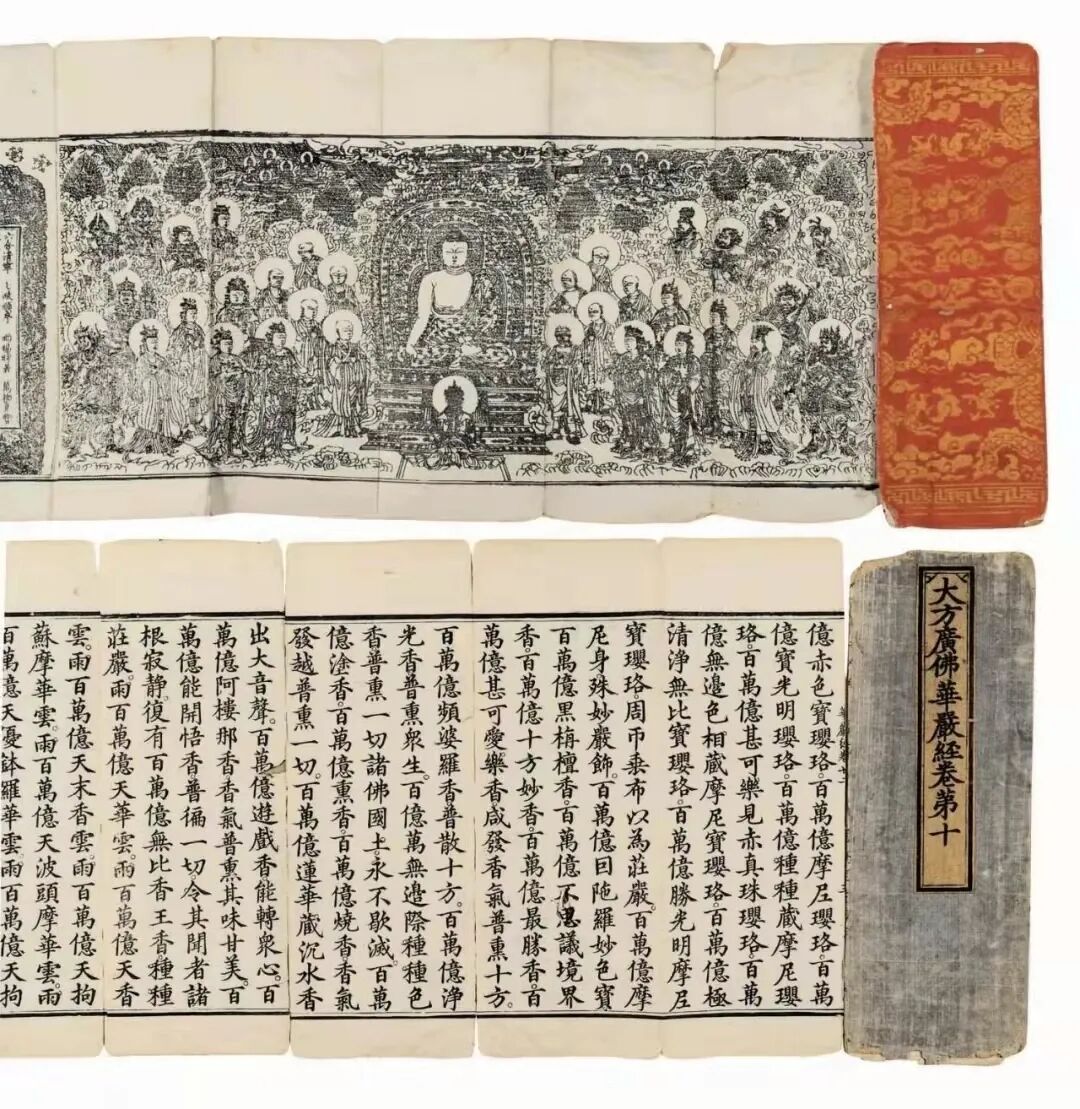 大方廣佛華嚴經卷第十
億赤色寶瓔珞。百萬億摩尼瓔珞。百萬
億寶光明瓔珞。百萬億種種藏摩尼瓔
珞。百萬億甚可樂見赤真珠瓔珞。百萬
億無邊色相藏摩尼寶瓔珞。百萬億極
清淨無比寶瓔珞。百萬億勝光明摩尼
寶瓔珞。周帀垂布以為莊嚴。百萬億摩
尼身。殊妙嚴飾。百萬億因陁羅妙色寶
百萬億黑栴檀香。百萬億不思議境界
香。百萬億十方妙香。百萬億最勝香。百
萬億甚可愛樂香。咸發香氣普熏十方。
百萬億頻婆羅香普散十方。百萬億淨
光香普熏衆生。百億萬無邊際種種色
香普熏一切諸佛國土。永不歇滅。百萬
億塗香。百萬億熏香。百萬億燒香香氣
發越普熏一切。百萬億蓮華藏沉水香
出大音聲。百萬億遊戲香能轉衆心。百
萬億阿樓那香香氣普熏其味甘美。百
萬億能開悟香普徧一切。令其聞者諸
根寂静。復有百萬億無比香王香種種
莊嚴。雨百萬億天華雲。雨百萬億天香
雲。雨百萬億天末香雲。雨百萬億天拘
蘇摩華雲。雨百萬億天波頭摩華雲。雨
百萬億天憂鉢羅華雲。雨百萬億天拘